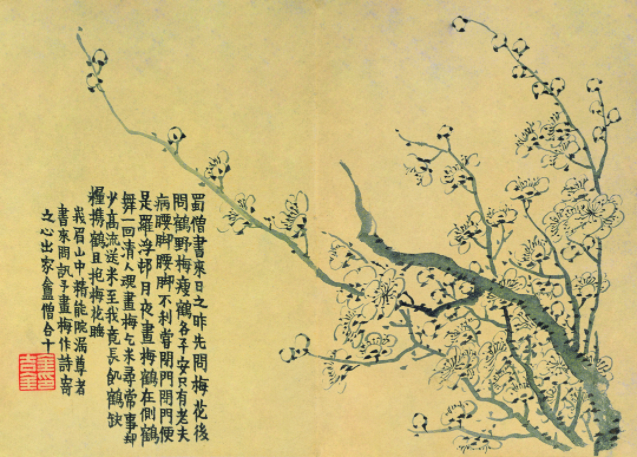 蜀僧書來日之昨先問梅花後
問鶴野梅瘦鶴各平安只有老夫
病腰脚腰脚不利嘗閉門閉門便
是羅浮邨月夜畫梅鶴在側鶴
舞一回清人魂畫梅乞米尋常事却
少高流送米至我竟長飢鶴缺
糧攜鶴且抱梅花睡
峩眉山中精能院漏尊者
書來問訊予畫梅作詩寄
之心出家盦僧合十